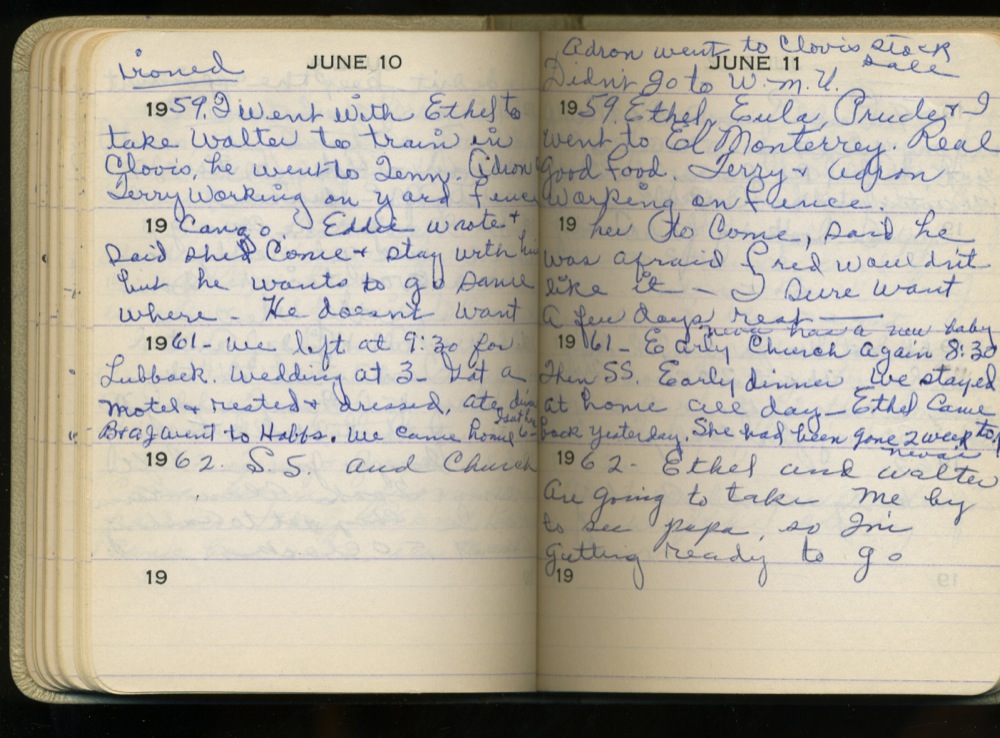 ironed
JUNE 10
1959. I went with Ethel to
take Walter to train in
Clovis, he went to Tenn. Adron
Terry Working on yard fence
19 Can go. Eddie wrote +
said she'd Come + stay with him
but he wants to go some
where - He doesn't want
1961 - We left at 9:30 for
Lubbock. Wedding at 3 - Got a
motel + rested + dressed, ate
B + J went to Hobbs. We came home
1962. S S. and Church
19
Adron went to Clovis Stock
Sale
JUNE 11
Didn't go to W.M.U.
1959. Ethel, Eula, Prude + I
went to El Monterrey. Real
good food. Terry + Adron
working on fence.
19 her to come, said he
was afraid Fred wouldn't
like it - I sure want
a few days rest
Neva has a new baby
1961 - Early Church again 8:30
Then SS. Early dinner We stayed
at home all day - Ethel Came
back yesterday. She had been gone 2 week to
Neva's
1962 - Ethel and Walter
are going to take me by
to see papa, so I'm
getting ready to go
19